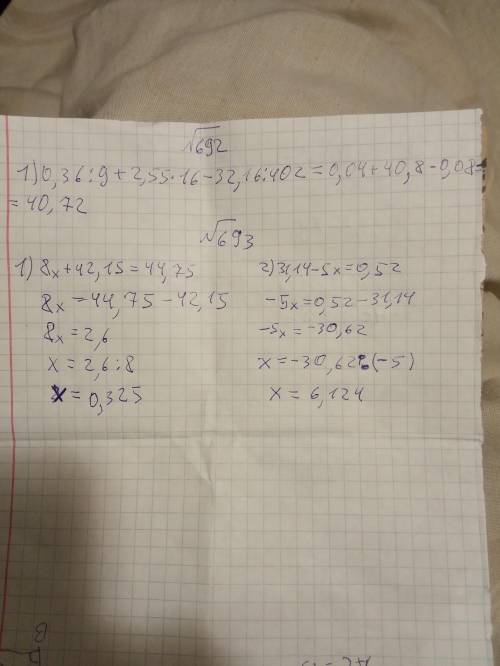 √692
1) 0,36:9+2,55·16-32,16:402=0,04+40,8-0,08=
=40,72
√693
1) 8x+42,15=44,75
8x=44,75-42,15
8x=2,6
x=2,6:8
x=0,325
2) 31,14-5x=0,52
-5x=0,52-31,14
-5x=-30,62
x=-30,62:(-5)
x=6,124
B